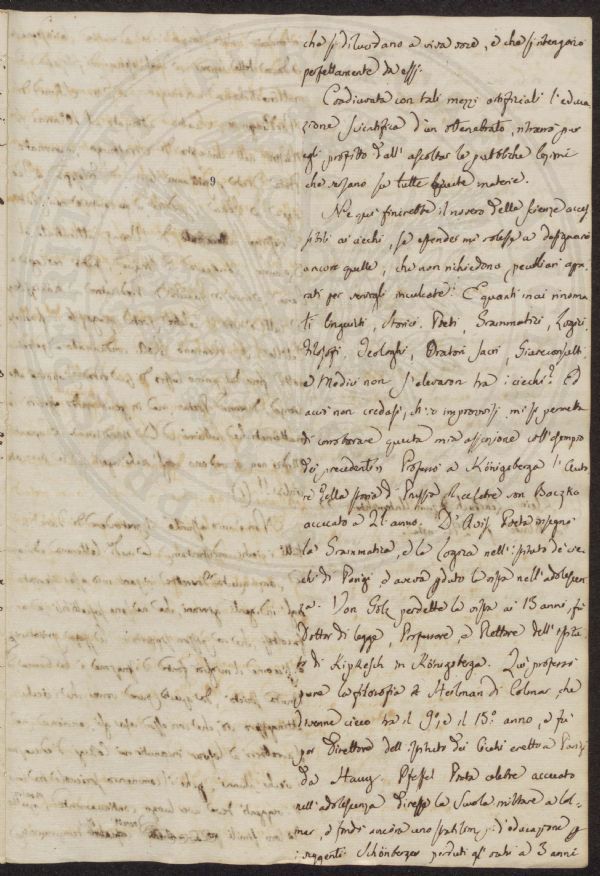 che si dilucidano a viva voce, e che si intengono
perfettamente da essi.
Coadiuvata con tali mezzi artifiziali l'educa-
zione scientifica d'un ottenebrato, ritrarrà pur
egli profitto dall'ascoltar le pubbliche lezioni
che versano su tutte queste materie.
Nè qui finirebbe il novero delle scienze acces-
sibili ai ciechi, se estender mi volessi a designare
ancora quelle, che non richiedono peculiari appa-
rati per venirgli inculcate. E quanti mai rinoma-
ti linguisti, Storici, Poeti, Grammatici, Logici,
Filosofi, Teologhi, Oratori Sacri, Giureconsulti
e Medici non s'elevaron tra i ciechi? Ed
acciò non credasi, ch'io improvvisi, mi si permetta
di corroborare questa mia asserzione coll'esempio
dei precedenti Professò a Königsberga l'Auto-
re della storia di Prussia von Baczko
acciecato a 21 anno. D'Avisse Poeta insegnò
la Grammatica, e la Logica nell'Istituto dei cie-
chi di Parigi, ed aveva perduto la vista nell'adolescen-
za. Von Golz perdette la vista ai 13 anni, fu
Dottor di legge, Professore, e Rettore dell'istitu-
to di Kipkesch in Königsberga. Qui professò
pure la filosofia Heilman di Colmar, che
divenne cieco tra il 9º, e il 15º anno, e fu
poi Direttore dell'Istituto dei Ciechi eretto a Parigi
da Hauy. Pfeffel Poeta celebre acciecato
nell'adolescenza diresse la Scuola militare a Col-
mar, e fondò ancora uno stabilimento d'educazione
Schönberger perduti gli occhi a 3 anni
9